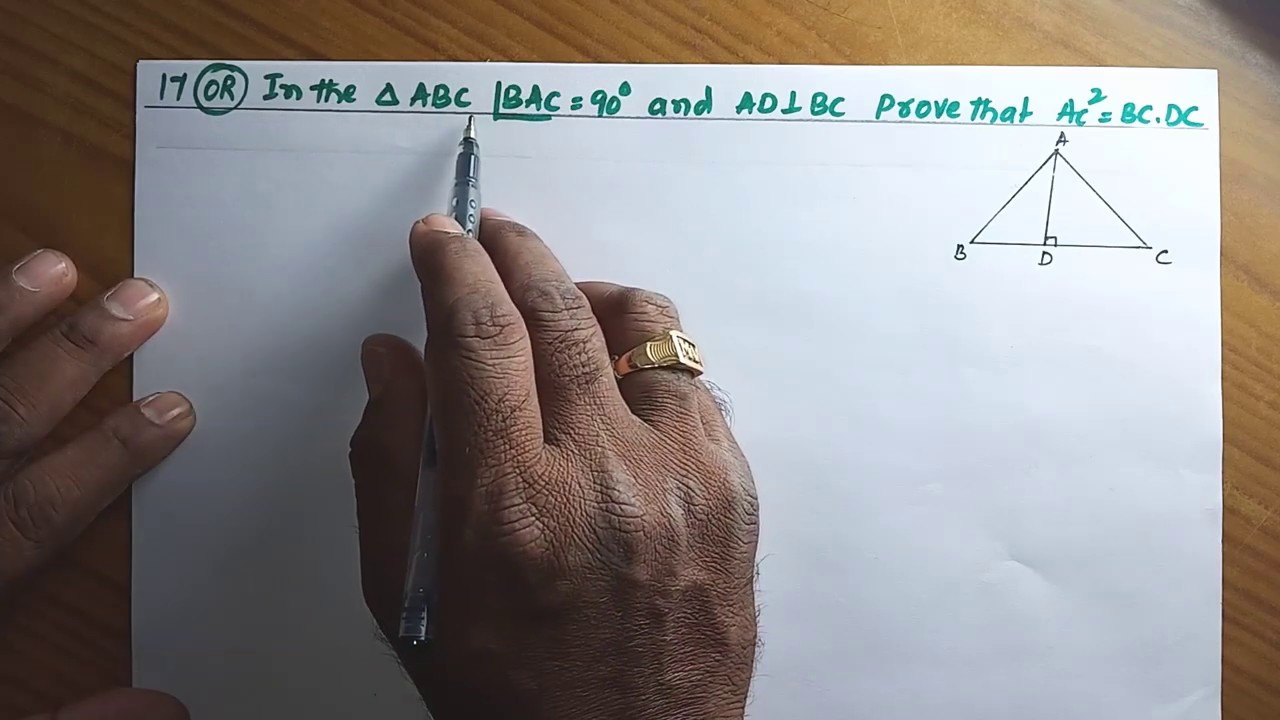 17 OR In the △ ABC ∠BAC = 90° and AD ⊥ BC Prove that AC² = BC.DC
A
B D C